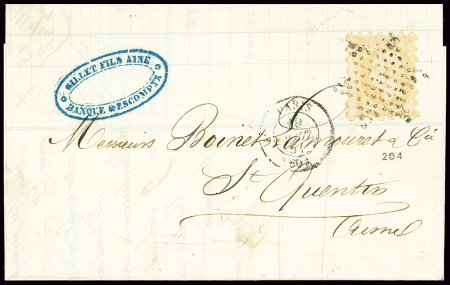 GILLET FILS AINÉ
BANQUE & ESCOMPTE
Messieurs Boinet & Cie
204
St Quentin
Aisne